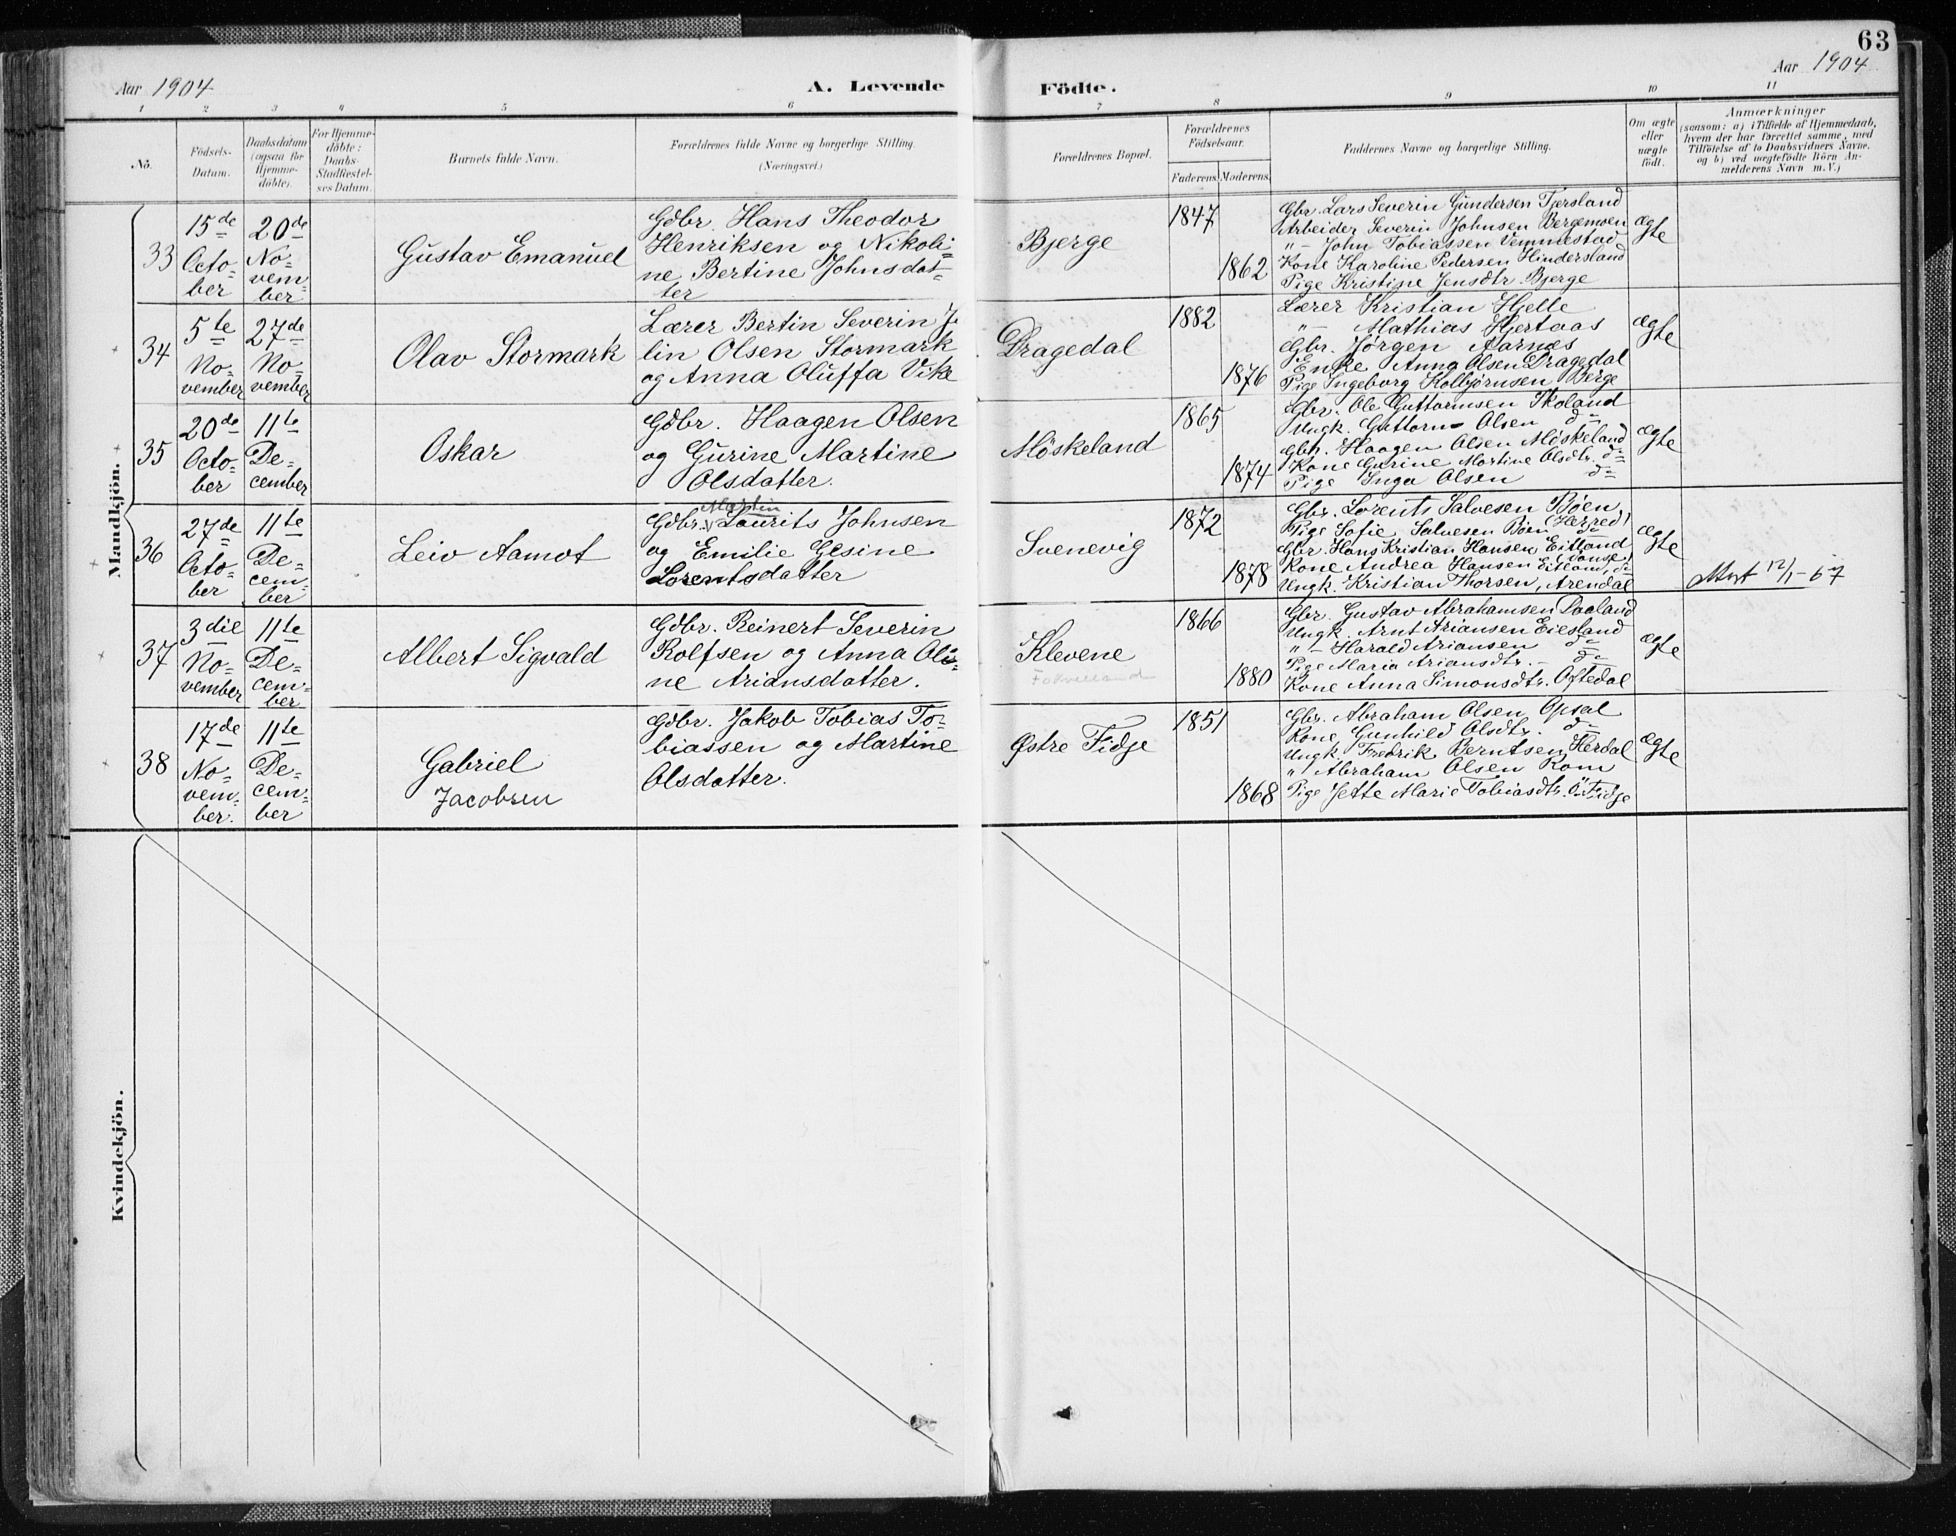 63
Aar 1904
A. Levende
Födte.
Aar 1904
1 2 3 4 5 6 7 8 9 10 11
No.
Födsels-
Datum.
Daabsdatum
(ogsaa for
Hjemme-
döbte).
For Hjemme-
döbte:
Daabs-
Stadfæstel-
ses Datum.
Barnets fulde Navn.
Forældrenes fulde Navne og borgerlige Stilling.
(Næringsvei.)
Forældrenes Bopæl.
Forældrenes
Födselsaar.
Faderens. Moderens.
Faddernes Navne og borgerlige Stilling.
Om ægte
eller
uægte
födt.
Anmærkninger
(saasom: a) i Tilfælde af Hjemmedaab,
hvem der har forrettet samme, med
Tilföielse af to Daabsvidners Navne,
og b) ved uægtefödte Börn An-
melderens Navn m. V.)
Mandkjön.
33
15de
Octo-
ber
20de
No-
vem-
ber
Gustav Emanuel
Gdbr. Hans Theodor
Henriksen og Nikoli-
ne Bertine Johnsdat-
ter
Bjerge
1847
1862
Gbr. Lars Severin Gundersen Tjersland
Arbeider Severin Johnsen Bergemoen
"- John Tobiassen Vemmestad
Kone Karoline Pedersen Hindersland
Pige Kristine Jensdtr. Bjerge
ægte
34
5te
No-
vember
27de
No-
vember
Olav Stormark
Lærer Bertin Severin J
lin Olsen Stormark
og Anna Oluffa Vike
Dragedal
1882
1876
Lærer Kristian Hjelle
"- Mathias Hjertaas
Gbr. Jørgen Aarnes
Enke Anna Olsen Dragedal
Pige Ingeborg Kolbjørnsen Berge
ægte
35
20de
Octo-
ber
11te
De-
cember
Oskar
Gdbr. Haagen Olsen
og Gurine Martine
Olsdatter.
Möskeland
1865
1874
Gbr. Ole Guttormsen Skoland
Ungk. Guttorm Olsen do
Gbr. Haagen Olsen Möskeland
Kone Gurine Martine Olsdtr. do
Pige Inga Olsen do
ægte
36
27de
Octo-
ber
11te
De-
cem-
ber
Leiv Aamot
Martin
Gdbr. Laurits Johnsen
og Emilie Gesine
Lorentsdatter
Svenevig
1872
1878
Gbr. Lorents Salvesen Bøen,
Pige Sofie Salvesen Böen (Herred)
Gbr. Hans Kristian Hansen Eitland
Kone Andrea Hansen Eitland, do
Ungk. Kristian Thorsen, Arendal
ægte
Mort 12/1-67
37
3die
No-
vember
11te
De-
cem-
ber
Albert Sigvald
Gdbr. Reinert Severin
Rolfsen og Anna Oli-
ne Ariansdatter.
Klevene
1866
1880
Gbr. Gustav Abrahamsen Daaland
Ungk. Arnt Ariansen Eiesland
"- Harald Ariansen do
Pige Maria Ariansdtr. - do
Kone Anna Simonsdtr. Oftedal
ægte
38
17de
No-
vem-
ber.
11te
De-
cem-
ber
Gabriel
Jacobsen
Gdbr. Jakob Tobias To-
biassen og Martine
Olsdatter.
Østre Fidje
1851
1868
Gbr. Abraham Olsen Opsal
Kone Gunhild Olsdtr. do
Ungk. Fredrik Berntsen Herdal
" Abraham Olsen Rom
Pige Jette Marie Tobiasdtr. Ö. Fidje
ægte
Kvindekjön.